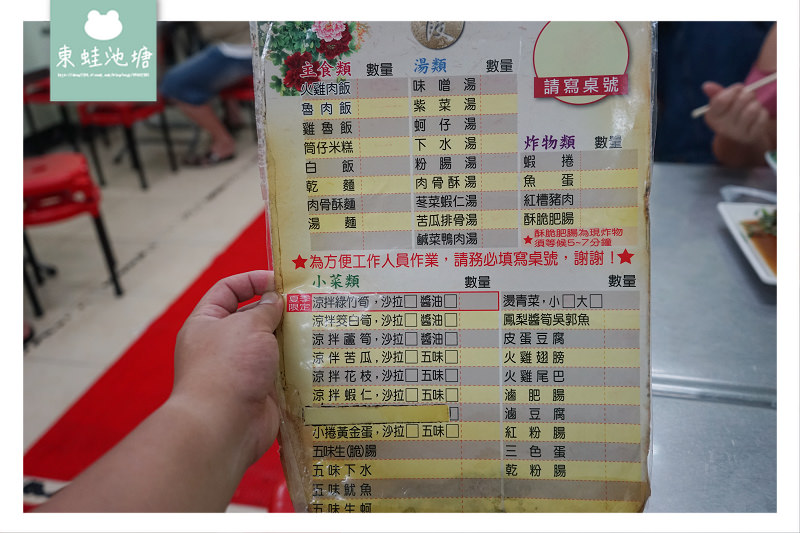 東蛙池塘
主食類 數量
火雞肉飯
魯肉飯
雞魯飯
筒仔米糕
白飯
乾麵
肉骨酥麵
湯麵
湯類 數量
味噌湯
紫菜湯
蚵仔湯
下水湯
粉腸湯
肉骨酥湯
莖菜蝦仁湯
苦瓜排骨湯
鹹菜鴨肉湯
請寫桌號
炸物類 數量
蝦捲
魚蛋
紅槽豬肉
酥脆肥腸
★酥脆肥腸為現炸物
須等候5-7分鐘
★為方便工作人員作業，請務必填寫桌號，謝謝！★
小菜類 數量 數量
夏季限定 涼拌綠竹筍，沙拉□醬油□
涼拌茭白筍，沙拉□醬油□
涼拌蘆筍，沙拉□醬油□
涼拌苦瓜，沙拉□五味□
涼拌花枝，沙拉□五味□
涼拌蝦仁，沙拉□五味□
小捲黃金蛋，沙拉□五味□
五味生(脆)腸
五味下水
五味魷魚
五味生蚵
燙青菜，小□大□
鳳梨醬筍吳郭魚
皮蛋豆腐
火雞翅膀
火雞尾巴
滷肥腸
滷豆腐
紅粉腸
三色蛋
乾粉腸